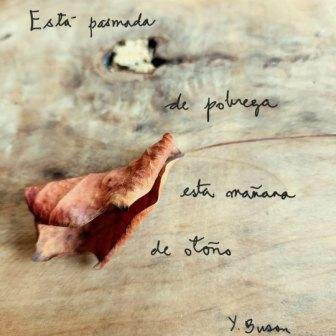 Está pasmada
de pobreza
esta mañana
de otoño
Y. Buson